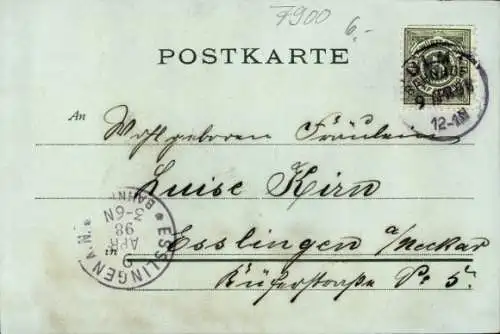 7900
6.-
POSTKARTE
An
Wohlgeboren Fräulein
Luise Kirn
in Esslingen a/Neckar
Küferstraße No 5.
ESSLINGEN A.N.
BAHNH
3-6N
APR
98
12-1N